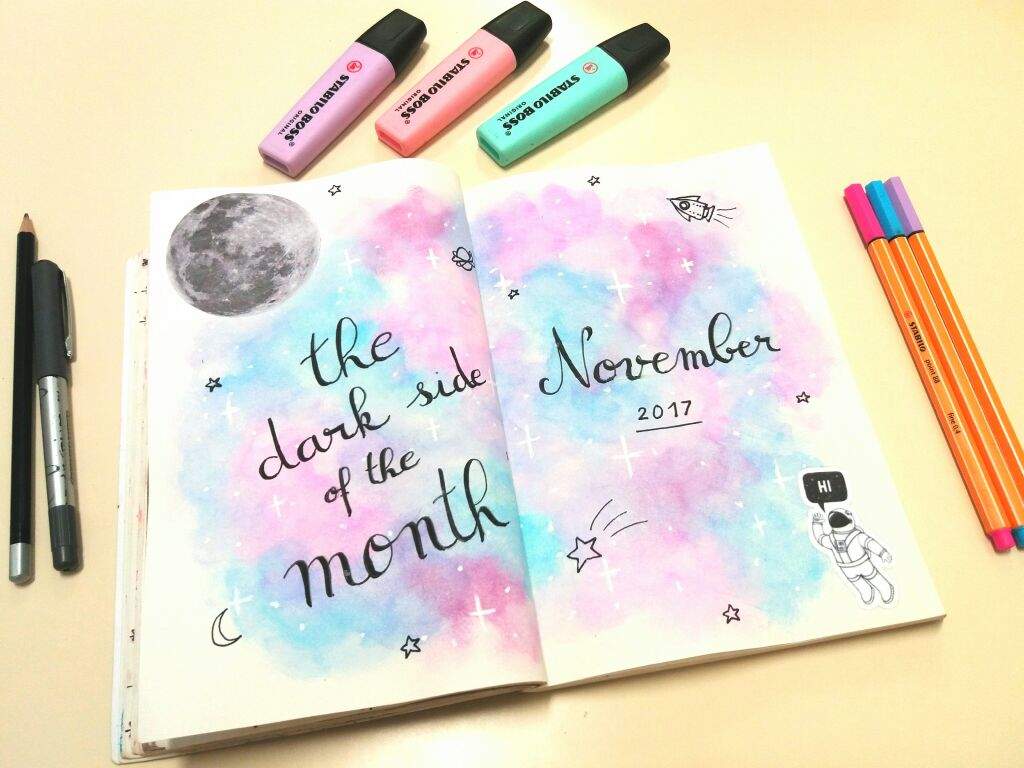 STABILO BOSS
ORIGINAL
STABILO BOSS
ORIGINAL
STABILO BOSS
ORIGINAL
the
dark side
of the
month
November
2017
HI
STABILO point 88 fine 0,4